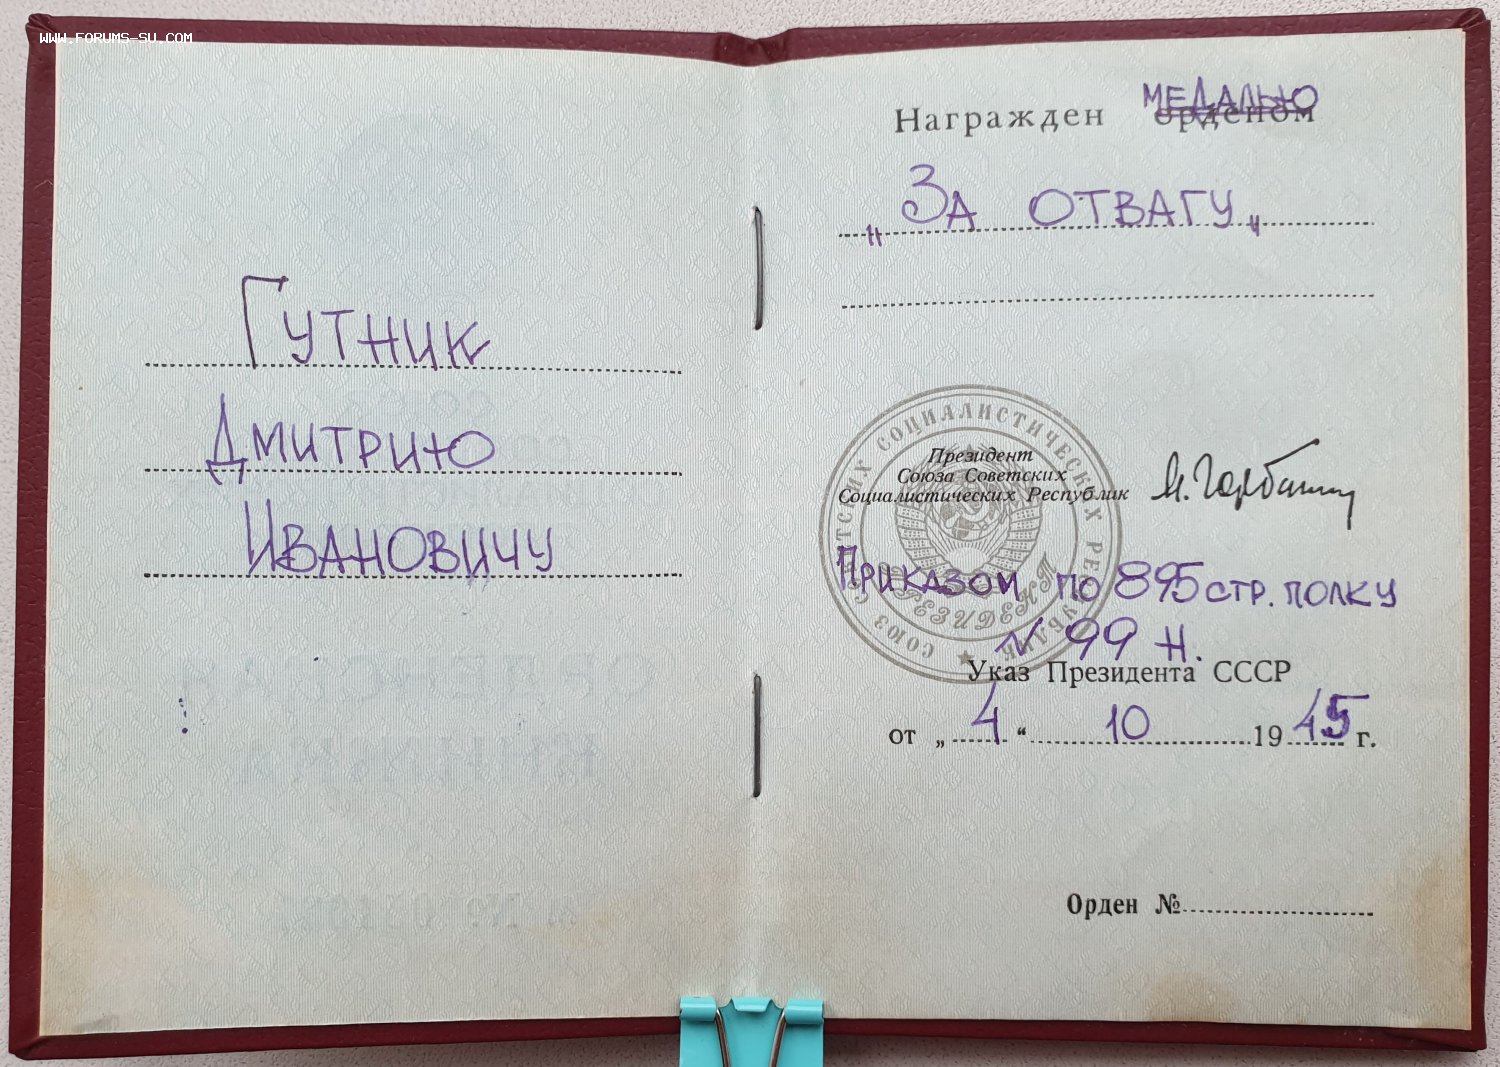 WWW.FORUMS-SU.COM
Гутник
Дмитрию
Ивановичу
Награжден орденом
медалью
„За отвагу„
СОЮЗ СОВЕТСКИХ СОЦИАЛИСТИЧЕСКИХ РЕСПУБЛИК
ПРЕЗИДЕНТ
Президент
Союза Советских
Социалистических Республик
М. Горбачев
Приказом по 895 стр. полку
№ 99 н.
Указ Президента СССР
от „4“ 10 1945 г.
Орден №